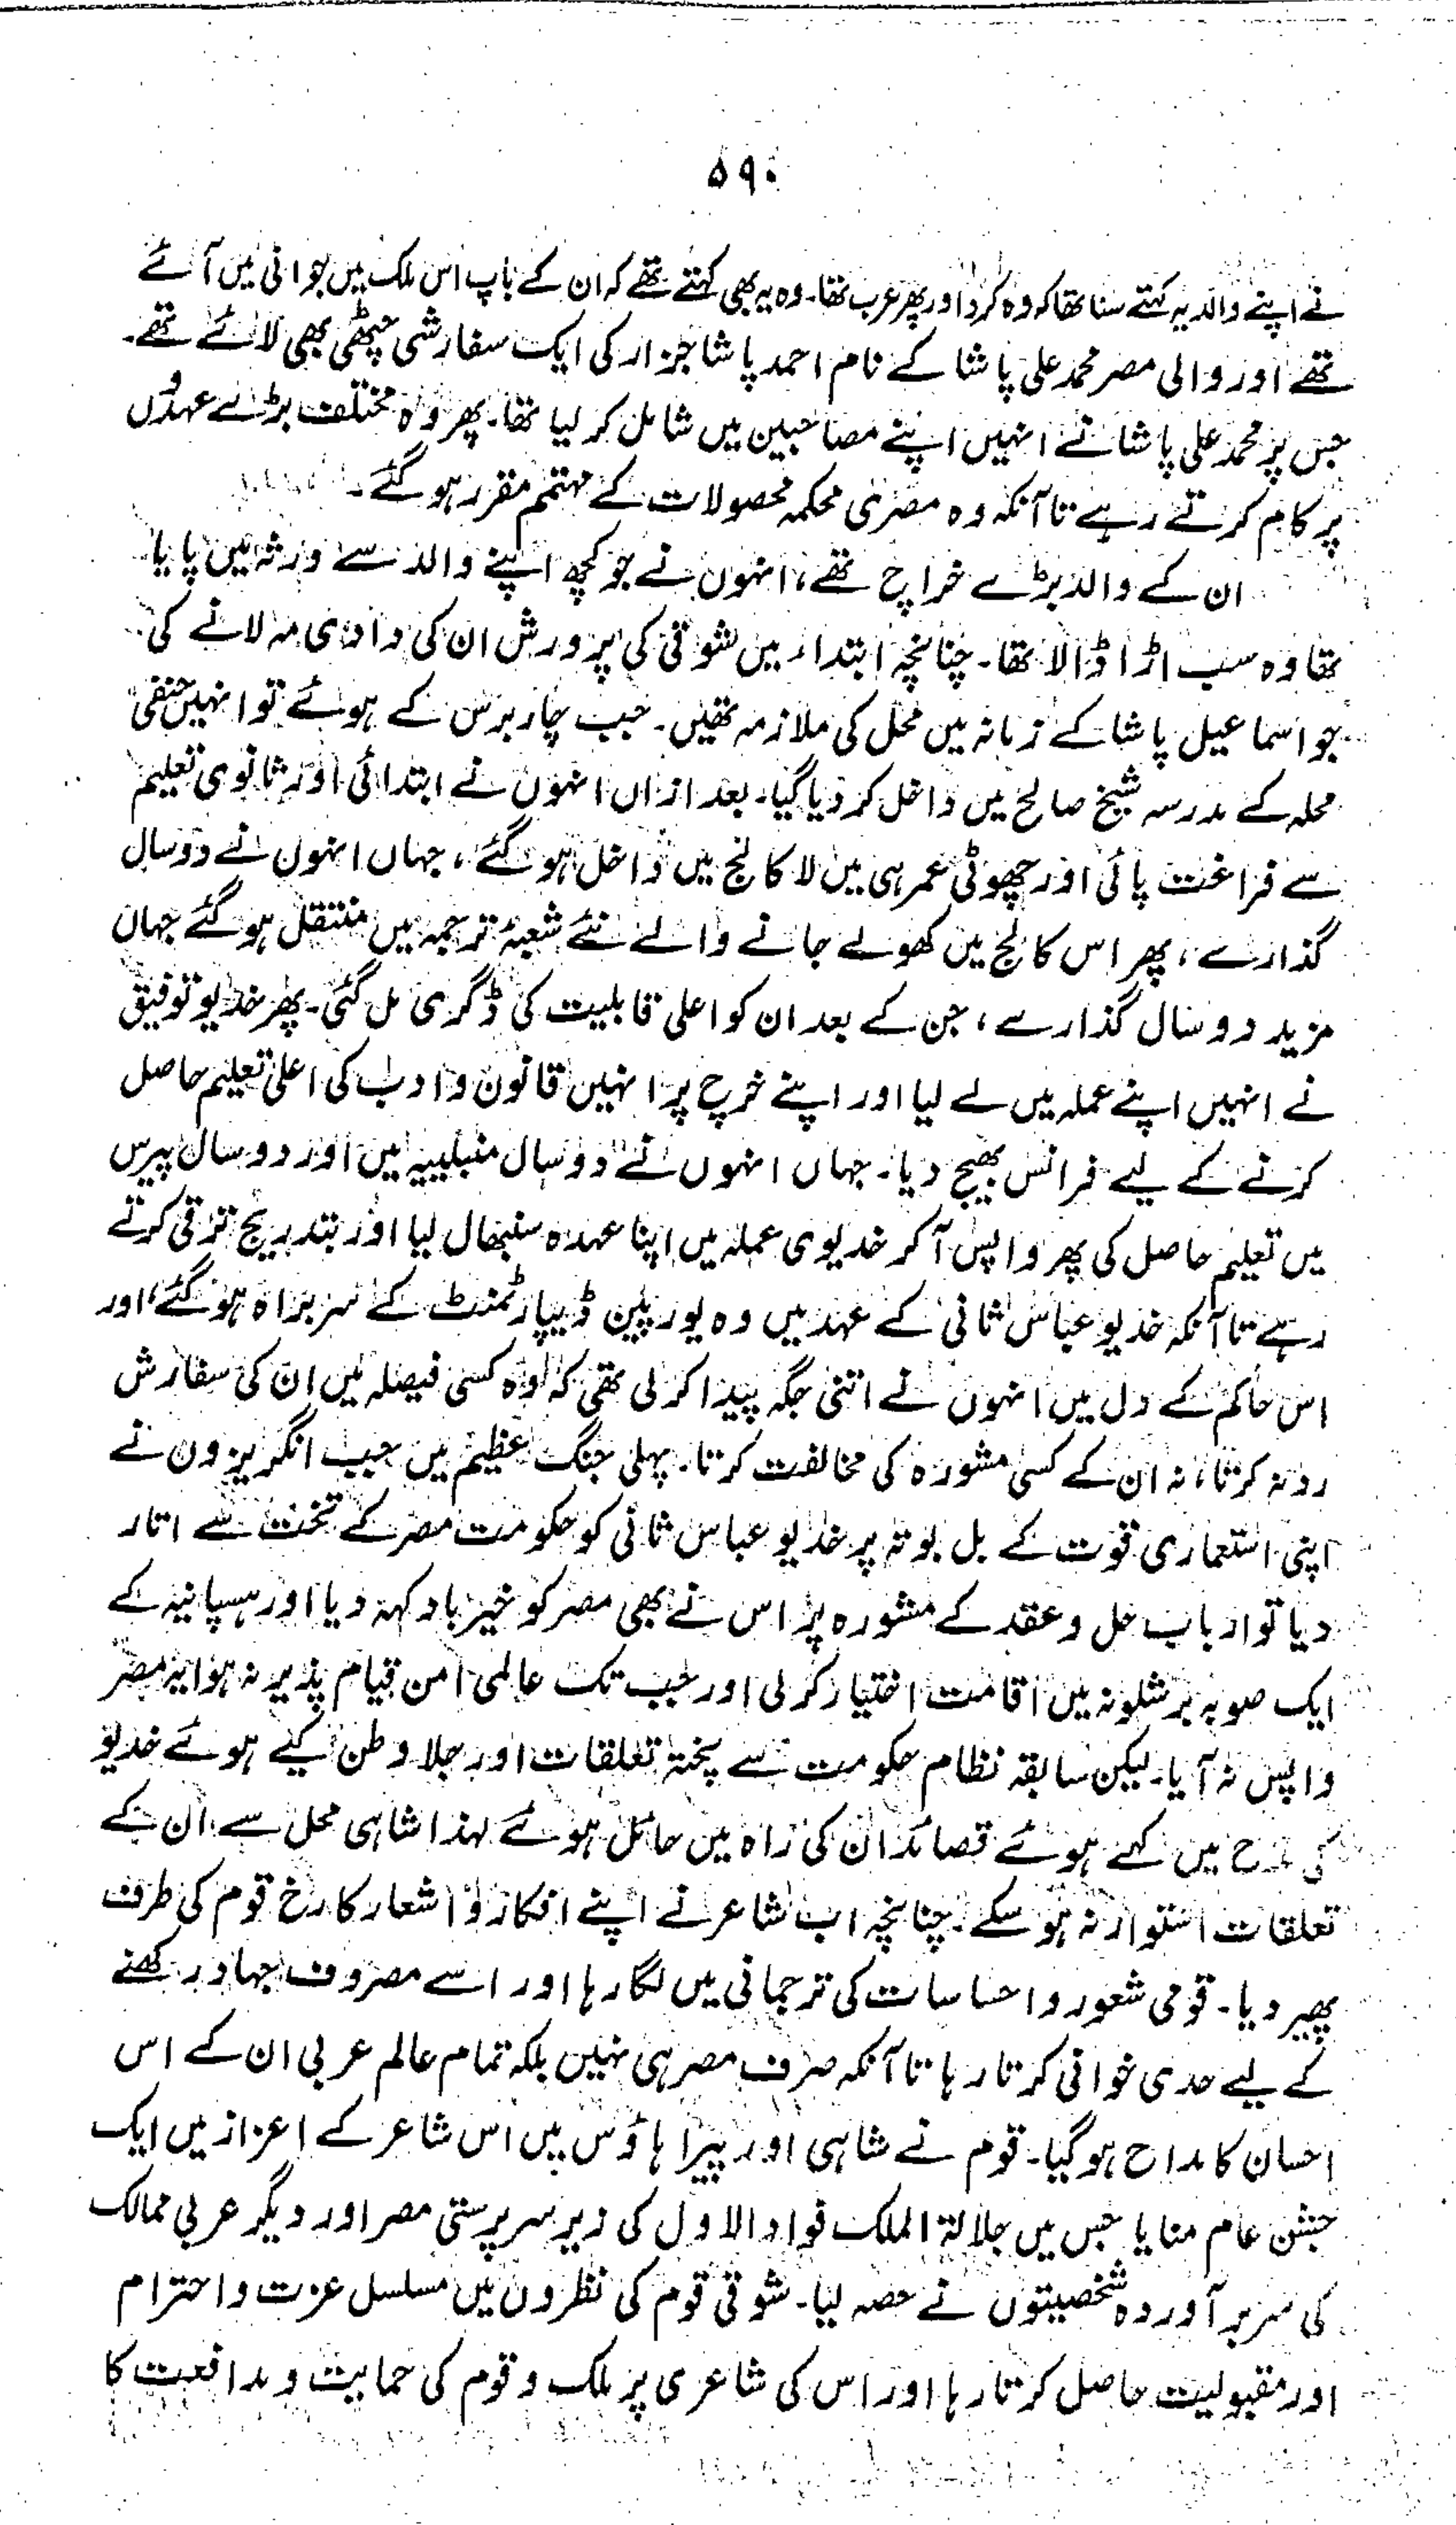 ۵۹۰
نے اپنے والد یہ کہتے سنا تھا کہ وہ کرد اور پھر عرب تھا۔ وہ یہ بھی کہتے تھے کہ ان کے باپ اس ملک میں جوانی میں آئے
تھے اور والی مصر محمد علی پاشا کے نام احمد پاشا جزار کی ایک سفارشی چٹھی بھی لائے تھے۔
جس پر محمد علی پاشا نے انہیں اپنے مصاحبین میں شامل کر لیا تھا۔ پھر وہ مختلف بڑے عہدوں
پر کام کرتے رہے تا آنکہ وہ مصری محکمہ محصولات کے مہتمم مقرر ہو گئے۔
ان کے والد بڑے خراچ تھے، انہوں نے جو کچھ اپنے والد سے ورثہ میں پایا
تھا وہ سب اڑا ڈالا تھا۔ چنانچہ ابتداء میں شوقی کی پرورش ان کی دادی مہ لانے کی
جو اسماعیل پاشا کے زمانہ میں محل کی ملازمہ تھیں۔ جب چار برس کے ہوئے تو انہیں حنفی
محلہ کے مدرسہ شیخ صالح میں داخل کر دیا گیا۔ بعد ازاں انہوں نے ابتدائی اور ثانوی تعلیم
سے فراغت پائی اور چھوٹی عمر ہی میں لا کالج میں داخل ہو گئے، جہاں انہوں نے دو سال
گذارے، پھر اس کالج میں کھولے جانے والے نئے شعبۂ ترجمہ میں منتقل ہو گئے جہاں
مزید دو سال گذارے، جن کے بعد ان کو اعلی قابلیت کی ڈگری مل گئی۔ پھر خدیو توفیق
نے انہیں اپنے عملہ میں لے لیا اور اپنے خرچ پر انہیں قانون و ادب کی اعلی تعلیم حاصل
کرنے کے لیے فرانس بھیج دیا۔ جہاں انہوں نے دو سال منبلییہ میں اور دو سال پیرس
میں تعلیم حاصل کی پھر واپس آ کر خدیوی عملہ میں اپنا عہدہ سنبھال لیا اور بتدریج ترقی کرتے
رہے تا آنکہ خدیو عباس ثانی کے عہد میں وہ یورپین ڈیپارٹمنٹ کے سربراہ ہو گئے، اور
اس حاکم کے دل میں انہوں نے اتنی جگہ پیدا کر لی تھی کہ وہ کسی فیصلہ میں ان کی سفارش
رد نہ کرتا، نہ ان کے کسی مشورہ کی مخالفت کرتا۔ پہلی جنگ عظیم میں جب انگریزوں نے
اپنی استعماری قوت کے بل بوتہ پر خدیو عباس ثانی کو حکومت مصر کے تخت سے اتار
دیا تو ارباب حل و عقد کے مشورہ پر اس نے بھی مصر کو خیر باد کہہ دیا اور ہسپانیہ کے
ایک صوبہ برشلونہ میں اقامت اختیار کر لی اور جب تک عالمی امن قیام پذیر نہ ہوا یہ مصر
واپس نہ آیا۔ لیکن سابقہ نظام حکومت سے پختہ تعلقات اور جلا وطن کیے ہوئے خدیو
کی مدح میں کہے ہوئے قصائد ان کی راہ میں حائل ہوئے لہذا شاہی محل سے ان کے
تعلقات استوار نہ ہو سکے۔ چنانچہ اب شاعر نے اپنے افکار و اشعار کا رخ قوم کی طرف
پھیر دیا۔ قومی شعور و احساسات کی ترجمانی میں لگا رہا اور اسے مصروف جہاد رکھنے
کے لیے حدی خوانی کرتا رہا تا آنکہ صرف مصر ہی نہیں بلکہ تمام عالم عربی ان کے اس
احسان کا مداح ہو گیا۔ قوم نے شاہی اور پیرا ہاؤس میں اس شاعر کے اعزاز میں ایک
جشن عام منایا جس میں جلالة الملک فواد الاول کی زیر سرپرستی مصر اور دیگر عربی ممالک
کی سر بر آوردہ شخصیتوں نے حصہ لیا۔ شوقی قوم کی نظروں میں مسلسل عزت و احترام
اور مقبولیت حاصل کرتا رہا اور اس کی شاعری پر ملک و قوم کی حمایت و مدافعت کا